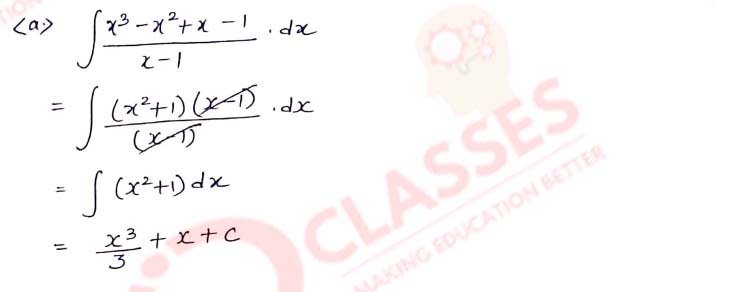 <a.> ∫ x³ - x² + x - 1 / x - 1 . dx
= ∫ (x²+1) (x-1) / (x-1) . dx
= ∫ (x²+1) dx
= x³/3 + x + c
CLASSES
MAKING EDUCATION BETTER